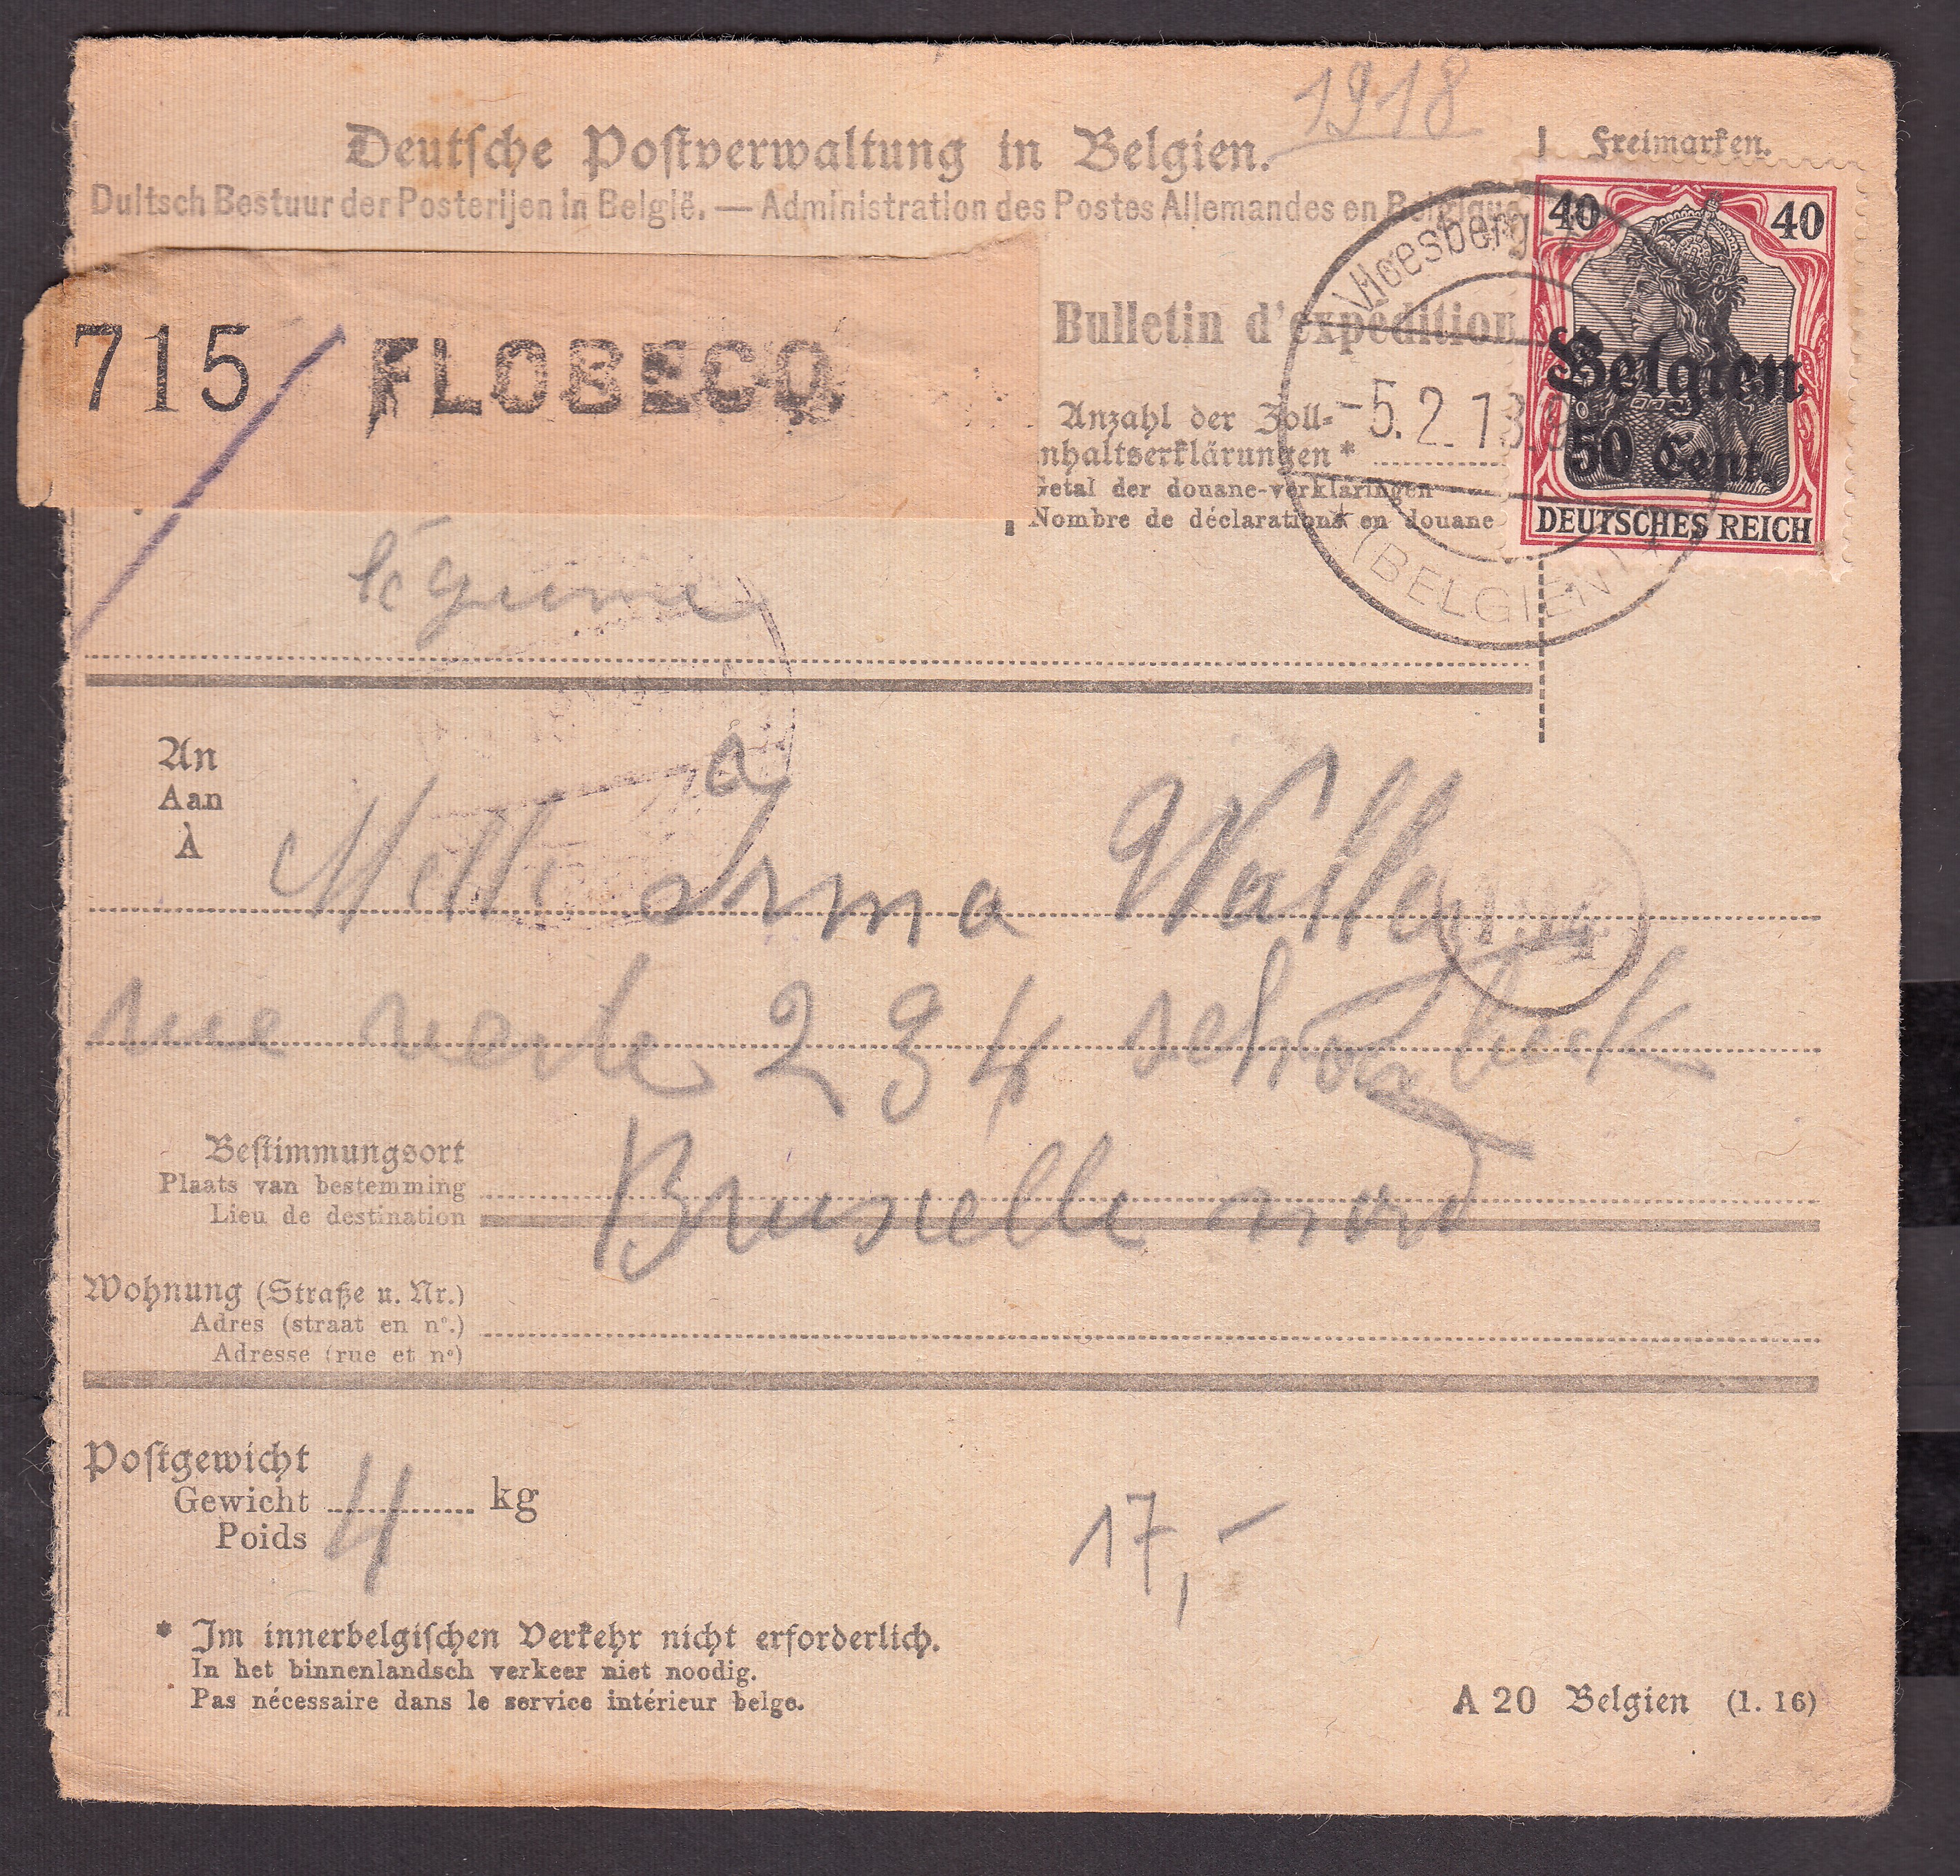 1918
Deutsche Postverwaltung in Belgien.
Freimarken.
Duitsch Bestuur der Posterijen in België. — Administration des Postes Allemandes en Belgique
40 40
Vloesberg
715 FLOBECQ
Bulletin d'expédition
Belgien
50 Cent.
Anzahl der Zoll-
nhaltserklärungen*
-5.2.18
Getal der douane-verklaringen
Nombre de déclarations en douane
DEUTSCHES REICH
(BELGIEN)
légume
An
Aan
À
à
Melle Irma
rue verte 234 schaarbeek
Bestimmungsort
Plaats van bestemming
Lieu de destination
Bruxelle nord
Wohnung (Straße u. Nr.)
Adres (straat en n°.)
Adresse (rue et n°)
Postgewicht
Gewicht 4 kg
Poids
17,-
* Im innerbelgischen Verkehr nicht erforderlich.
In het binnenlandsch verkeer niet noodig.
Pas nécessaire dans le service intérieur belge.
A 20 Belgien (1. 16)